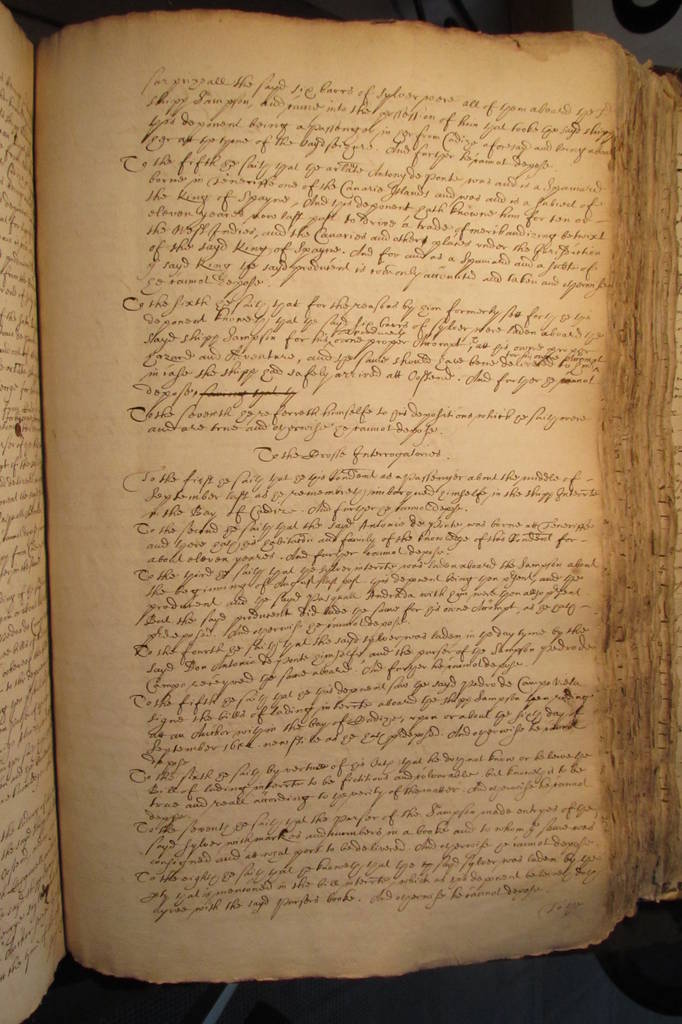 the sayd six barrs of sylver were all of them aboard the
shipp Sampson, and came into the possession of him that tooke the sayd shipp
this deponent being a passenger in her from Cadiz aforesayd and being aboard
her att the tyme of the sayd seizure. And further he cannot depose.
To the fifth he saith that the arlate Antony de Ponte was and is a Spaniard
borne in Teneriffe one of the Canarie Islands and was and is a subiect of
the King of Spayne, And this deponent hath knowne him for ten or
eleven yeares now last past to drive a trade of merchandizing betwixt
the West Indies, and the Canaries and other places under the Jurisdiction
of the sayd King of Spayne. And for and as a Spaniard and a subiect of
sayd King the sayd producent is commonly accounted and taken and otherwise
he cannot depose.
To the sixth he saith that for the reasons by him formerly sett forth he this
deponent knoweth that the said six barrs of sylver were laden aboard the
sayd shipp Sampson for his owne proper Accompt, att his owne proper
hazard and Adventure, and the same should have bene delivered to
in case the shipp had safely arrived att Oostend. And further he cannot
depose
To the seventh he referreth himselfe to his depositions, which he saith were
and are true and otherwise he cannot depose.
To the Crosse Interrogatories.
To the first he saith that he this Rendent as a passenger about the middle of
September last as he remembreth imbarqued himselfe in the shipp Interrate
in the Bay of Cadiz. And further he cannot depose.
To the second he saith that the sayd Antonio de Ponte was borne at Teneriffe
and there hath his habitation and family of the knowledge of this Rendent for
about eleven yeares. And further cannot depose.
To the third he saith that the sylver interrate was laden aboard the Sampson about
the beginning of August last past this deponent being then present, and the
producent and the sayd Pasquall Andrada with him were then also present
But the sayd producent did lade the same for his owne Accompt, as he hath
predeposed. And otherwise he cannot depose.
To the fourth he saith that the sayd sylver was laden in the day tyme by the
sayd Don Antonio de Ponte himselfe and the purser of the Sampson Pedro de
Campo received the same aboard. And further he cannot depose.
To the fifth he saith that he this deponent saw the sayd Pedro de Campo Vela
signe the bills of lading interrate aboard the shipp Sampson then riding
at an Anchor within the bay of Cadiz, upon or about the sixth day of
September 1652. as he hath predeposed. And otherwise he cannot
depose
To the sixth he saith by vertue of his oath that he doth not know or beleeve the
Bill of lading interrate to be fictitious and colourable but knoweth it to be
true and reall according to the verity of the matter. And otherwise he cannot
depose.
To the seventh he saith that the purser of the Sampson made entryes of the
sayd sylver with markes and numbers in a booke and to whom the same was
consigned and at what port to be delivered. And otherwise he cannot depose
To the eighth he saith that he knoweth that the sayd sylver was laden by the
that is mentioned in the bill interrate, which as this deponent beleeveth doth
agree with the sayd pursers booke. And otherwise he cannot depose.
To the